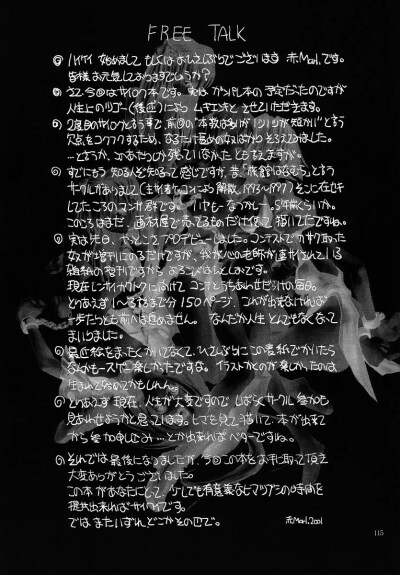 FREE TALK
◎ ハイケイ 始めまして もしくは おひさしぶりでございます 赤Marl.です。
皆様お元気しておりますでしょうか?
◎ さて 今回はサイロク本です。実は ガンパレ本の予定だったのですが
人生上のツゴー(後述)により ムキエンキと させていただきます。
◎ 2度目のサイロクという事で、前回の「本数は多いが1つ1つが短かい」という
欠点をコクフクするため、なるたけ長めの奴ばかりそろえてみました。
…というか、このあたりしか残っていなかったともいえますが。
◎ すでにもう知る人ぞ知るって感じですが、昔「旅館はなむら」という
サークルがありまして
してたころのマンガ群です。いやもーなつかしー。5年前くらいか。
このころはまだ、画材屋で売てるものだけ使って描いてたですねぇ。
◎ 実は先日、やっとこプロデビューしました。コンテストでカサク取った
奴が増刊にのるだけですが、我が心の老師が連サイされている
雑紙の増刊ですから よろこびはひとしおです。
現在レンサイカクトクに向けて、コンテとうちあわせだらけの毎日。
とりあえず1~3話まで分 150ページ、これが出来なければ
一歩たりとも前へは進めません。なんだか人生とんでもなくなって
まいりました。
◎ 最近絵をまったくかいてなくて、ひさしぶりにこの表紙でかいたら
なんかもースゲー楽しかたですな。イラストかくのが楽しかったのは
生まれてはじめてかもしれん。
◎ とりあえず現在、人生が大変ですので しばらくサークル参加も
見あわせようかと思っています。ヒマを見て描いて、本が出来て
から参加申し込み…とか出来ればベターですね。
◎ それでは最後になりましたが、今回この本をお手に取って頂え
大変ありがとうございました。
この本があなたにとって、少しでも有意義なヒマツブシの時間を
提共出来ればサイワイです。
ではまたいずれどこかその辺で。 赤Marl.2001
115